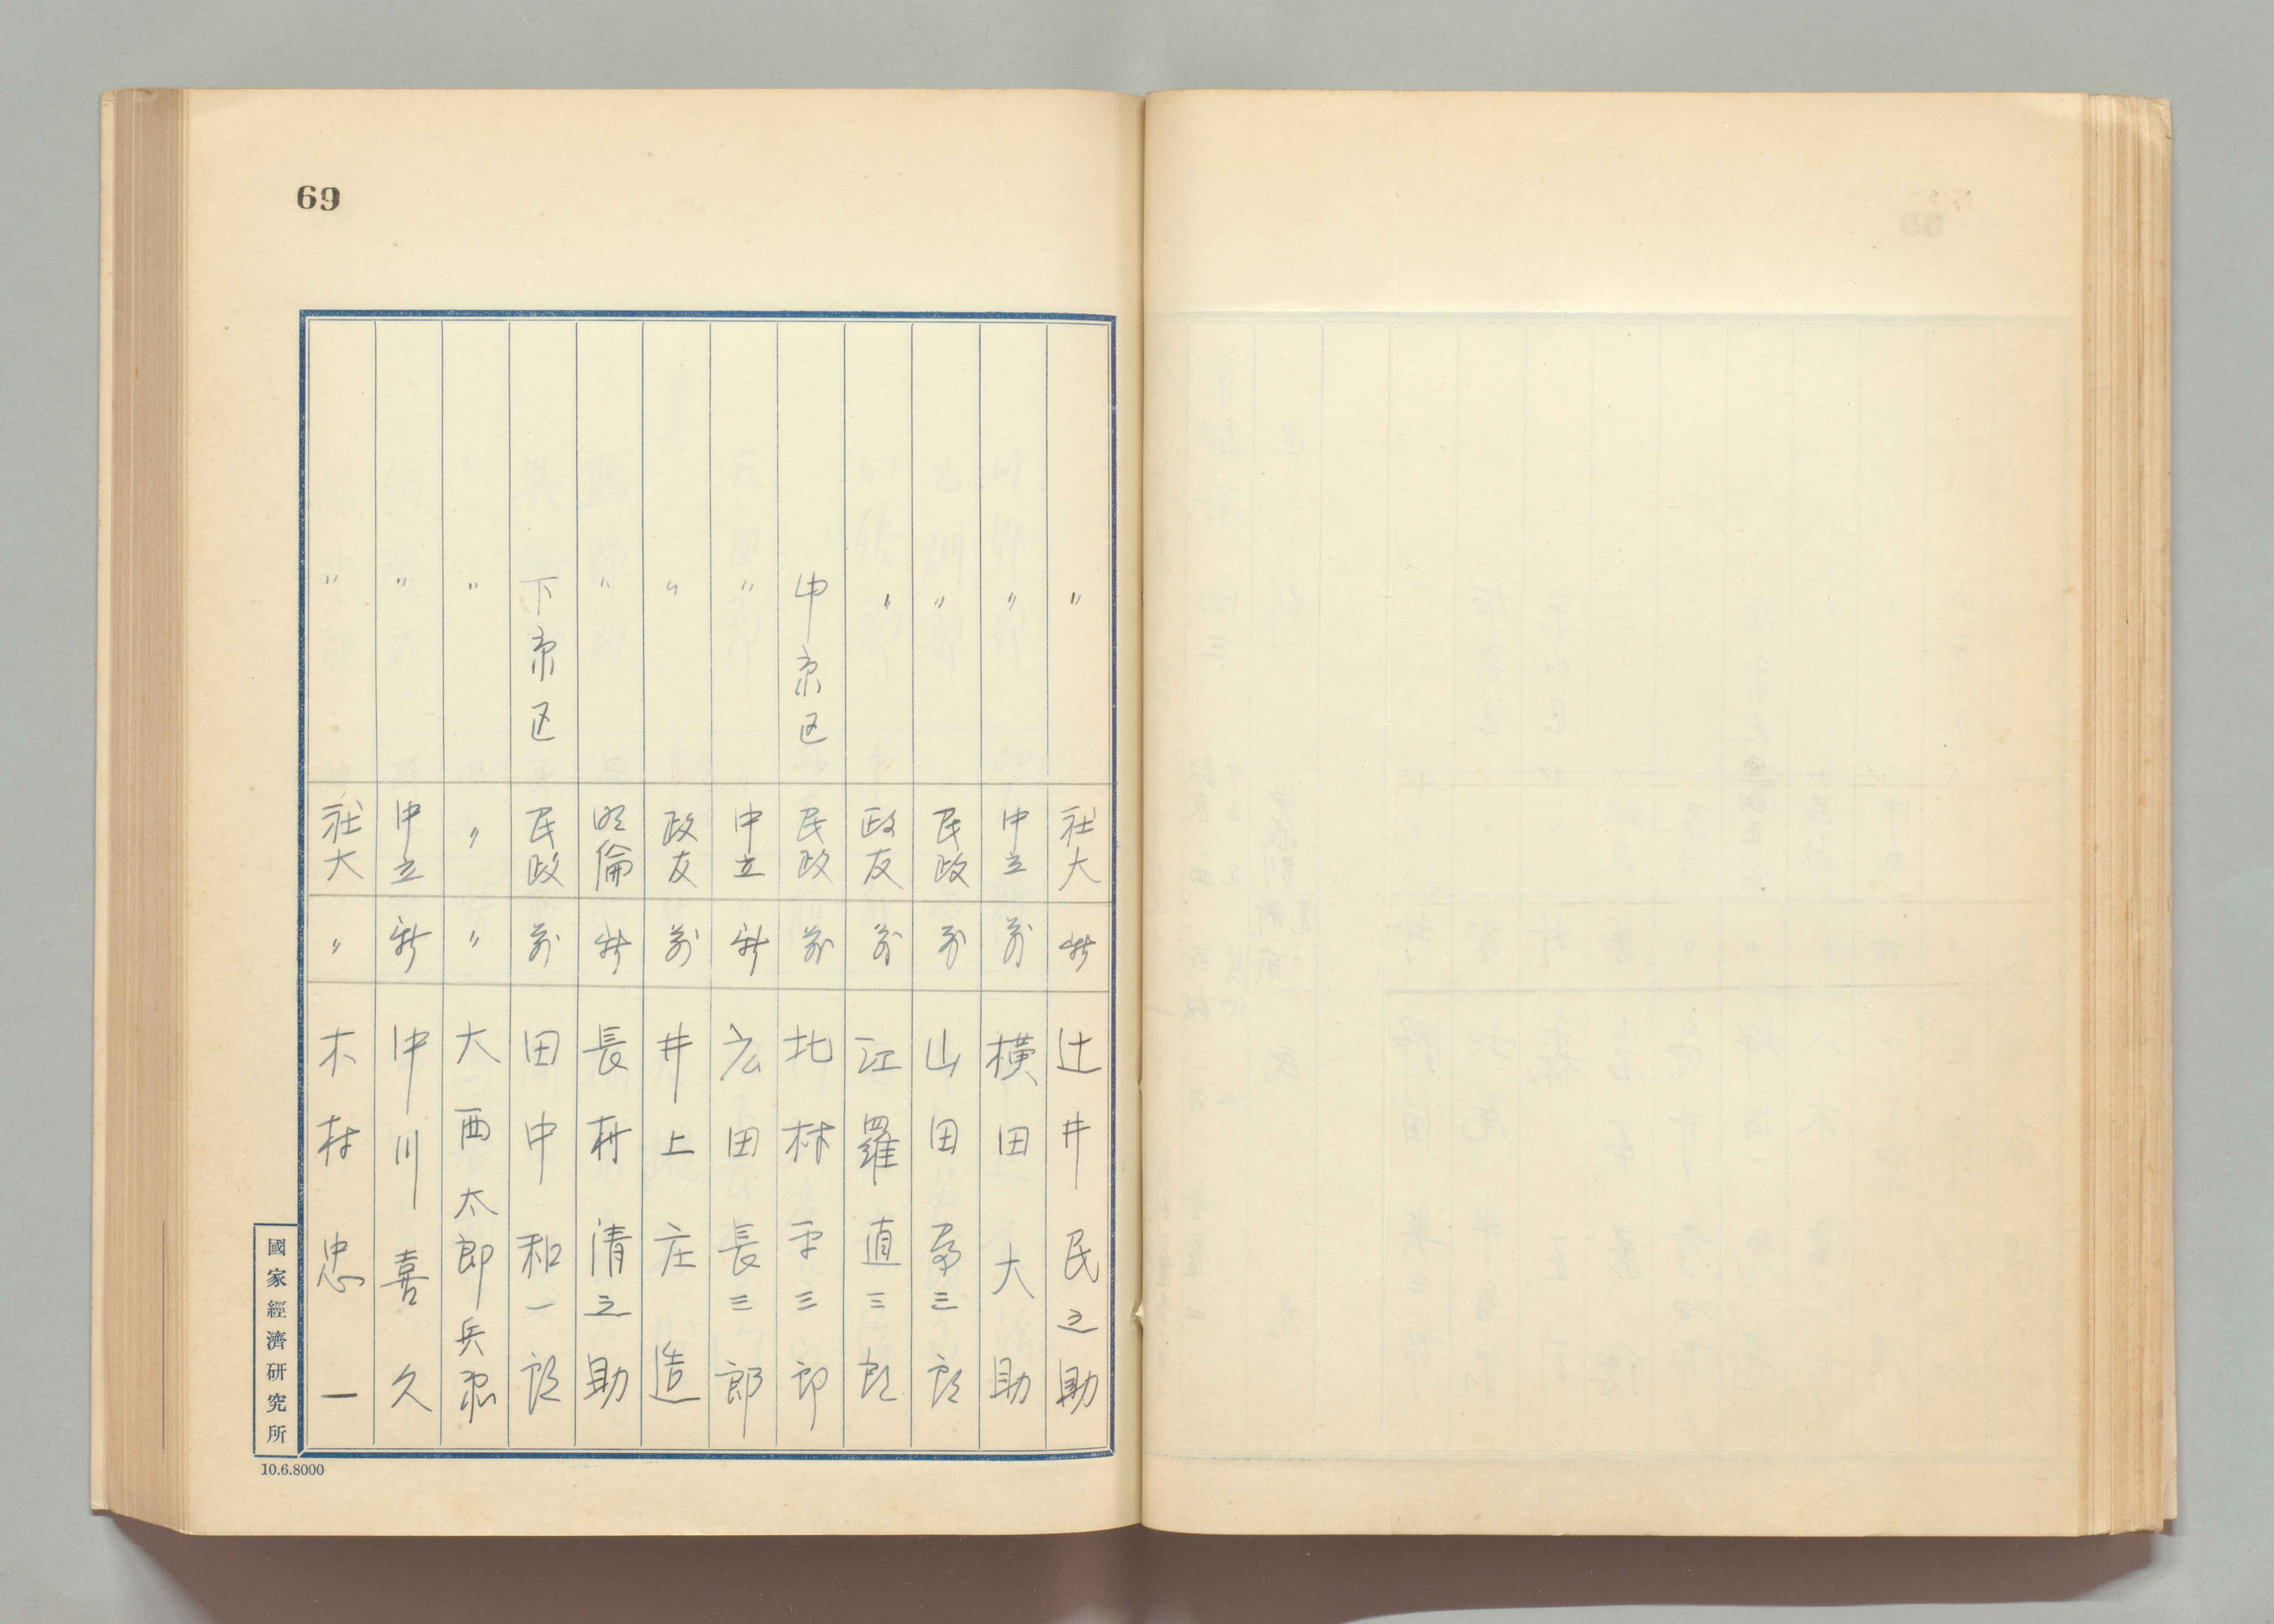 69
〃 社大 新 辻井民之助
〃 中立 前 横田大助
〃 民政 前 山田 三郎
〃 政友 前 江羅直三郎
中京区 民政 前 北林平三郎
〃 中立 新 広田長三郎
〃 政友 前 井上庄造
〃 明倫 新 長村清之助
下京区 民政 前 田中和一郎
〃 〃 〃 大西太郎兵衛
〃 中立 新 中川喜久
〃 社大 〃 木村忠一
國家經濟研究所
10.6.8000